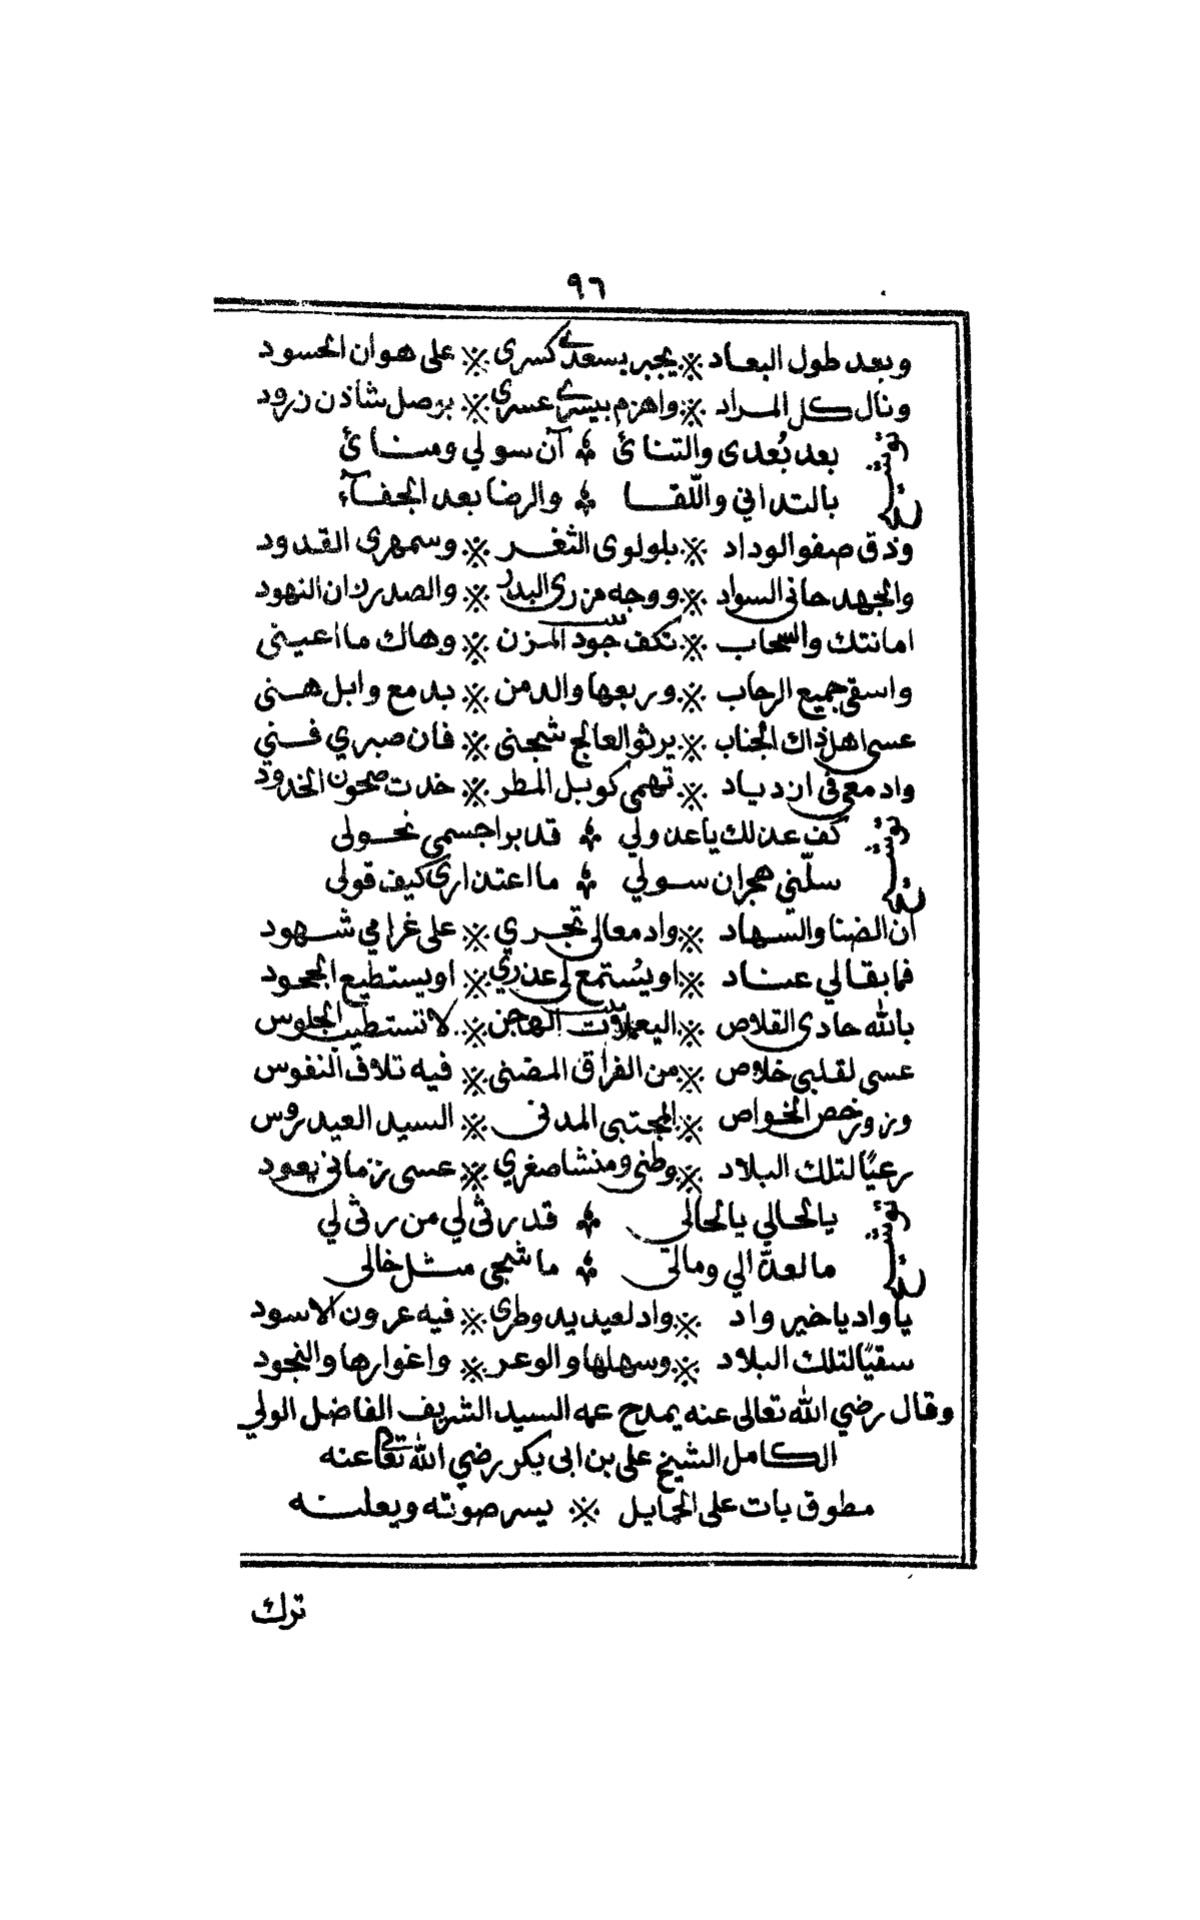 ٩٦
وبعد طول البعاد ※ يجبر بسعدي كسرى ※ على هوان الحسود
ونال كل المراد ※ واهزم بيسري عسري ※ بوصل شاذن زرود
توشيح بعد بُعدى والتنائ ⁂ آن سولي ومنائ
بالتداني واللّقا ⁂ والرضا بعد الجفآء
وذق صفو الوداد ※ بلولوى الثغر ※ وسمهرى القدود
والجهد حانى السواد ※ ووجه مزرى البدر ※ والصدر ان النهود
امانتك والسحاب ※ تكف جود المزن ※ وهاك ما اعيني
واسقى جميع الرحاب ※ وربعها والدمن ※ بدمع وابل هني
عسى اهل ذاك الجناب ※ يرثوا لعالج شجني ※ فان صبري فني
وادمعى فى ازدياد ※ تهمى كوبل المطر ※ خدت صحون الخدود
توشيح كف عذلك يا عذولي ⁂ قد برا جسمي نحولى
سلّني هجران سولي ⁂ ما اعتذارى كيف قولى
ان الضنا والسهاد ※ وادمعا لى تجري ※ على غرامي شهود
فما بقا لي عناد ※ او يُستمع لى عذري ※ او يستطيع الجحود
بالله حادى القلاص ※ اليعملات الهجن ※ لا تستطيب الجلوس
عسى لقلبي خلاص ※ من الفراق المضنى ※ فيه تلاف النفوس
وزور خص الخواص ※ المجتبى المدنى ※ السيد العيدروس
رعيًا لتلك البلاد ※ وطنى ومنشا صغري ※ عسى زمانى يعود
توشيح يا لحالي يا لحالى ⁂ قد رثى لي من رثى لي
ما لعذّالي ومالى ⁂ ما شجى مثل خالى
يا واد يا خير واد ※ واد لعيديد وطرى ※ فيه عرون الاسود
سقيًا لتلك البلاد ※ وسهلها والوعر ※ واغوارها والنجود
وقال رضي الله تعالى عنه يمدح عمه السيد الشريف الفاضل الولي
الكامل الشيخ على بن ابى بكر رضي الله تعالى عنه
مطوق بات على الحمايل ※ يسر صوته ويعلنه
ترك